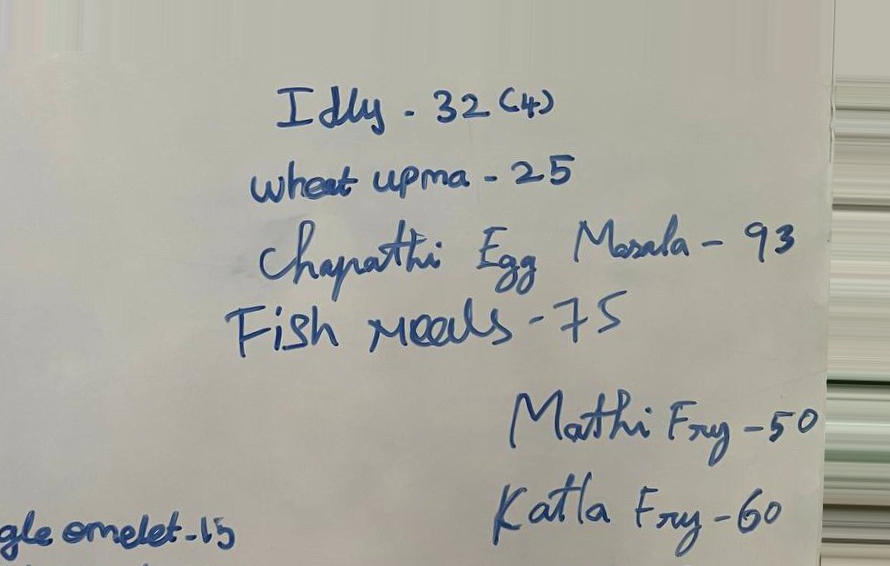 Idly - 32 (4)
wheat upma - 25
Chapathi Egg Masala - 93
Fish meals - 75
Mathi Fry - 50
Katla Fry - 60
gle omelet - 15